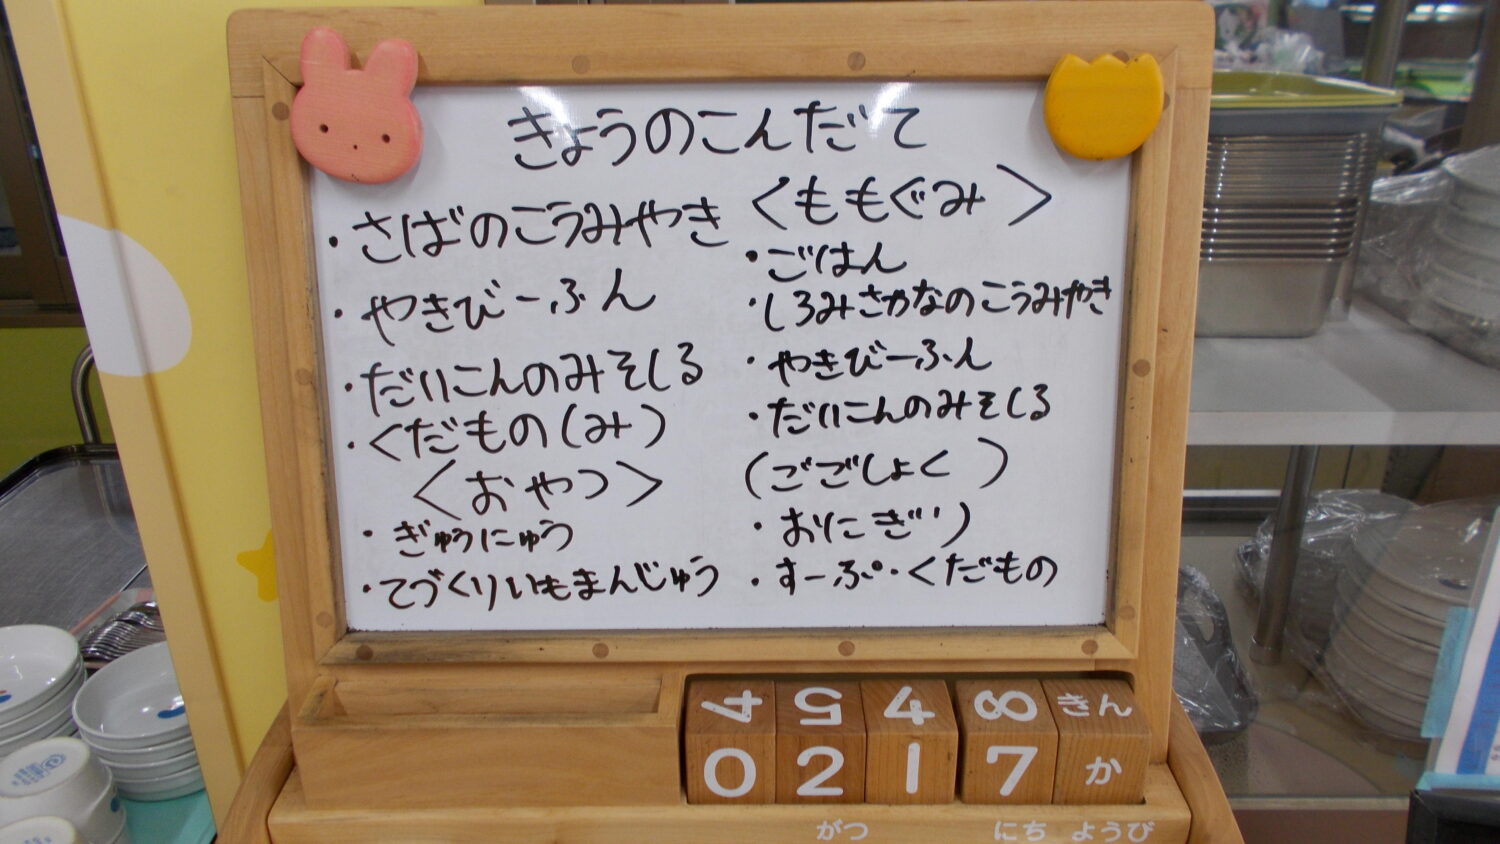 きょうのこんだて
・さばのこうみやき
・やきびーふん
・だいこんのみそしる
・くだもの(み)
<おやつ>
・ぎゅうにゅう
・てづくりいもまんじゅう
<ももぐみ>
・ごはん
・しろみさかなのこうみやき
・やきびーふん
・だいこんのみそしる
(ごごしょく)
・おにぎり
・すーぷ・くだもの
4 5 4 8 きん
0 2 1 7 か
がつ にち ようび